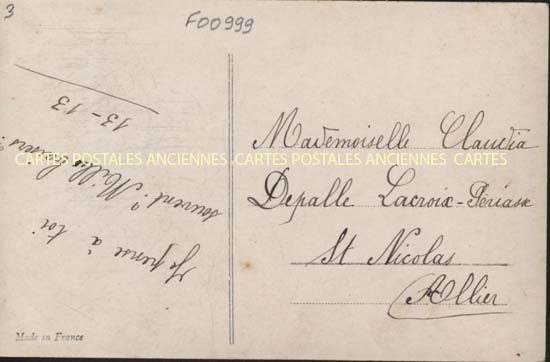 3
F00999
Je pense à toi
souvent. "Mille baisers"
13-13
Mademoiselle Claudia
Depalle Lacroix-Périask
St Nicolas
Allier
CARTES POSTALES ANCIENNES CARTES POSTALES ANCIENNES CARTES
Made in France